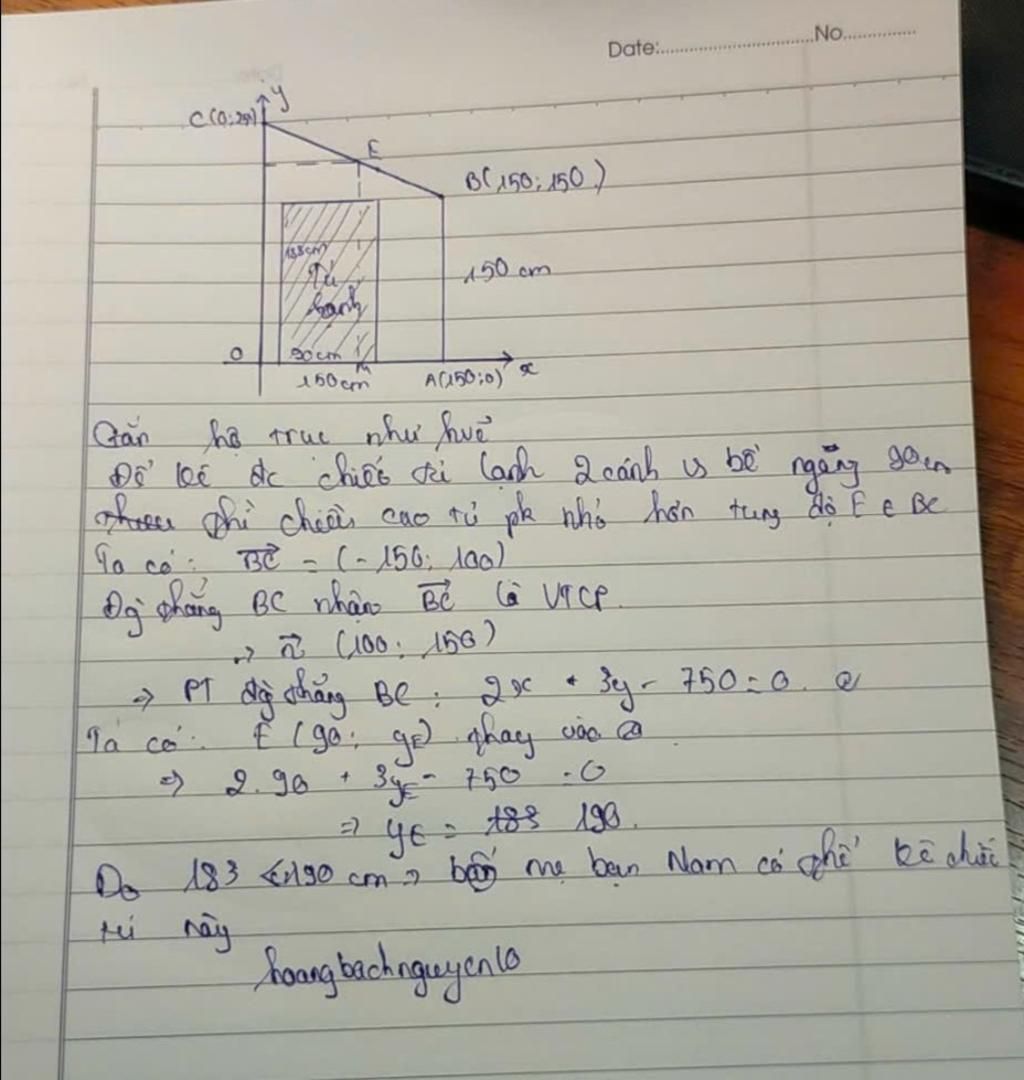 Date:..............................No...............
y
C(0;250)
E
B(150;150)
183cm
150 cm
Tủ
lạnh
O
90cm
150cm
A(150;0)
x
Gắn hệ trục như hvẽ
Để kê đc chiếc tủ lạnh 2 cánh vs bề ngang 90cm
thì chiều cao tủ pk nhỏ hơn tung độ E ∈ BC
Ta có: BC = (-150; 100)
Đg thẳng BC nhận BC là VTCP.
=> n (100; 150)
=> PT đg thẳng BC: 2x + 3y - 750 = 0
Ta có: E (90; yE) thay vào
=> 2.90 + 3yE - 750 = 0
=> yE = 190.
Do 183 < 190 cm => bố mẹ bạn Nam có thể kê chiếc
tủ này
hoangbachnguyen10